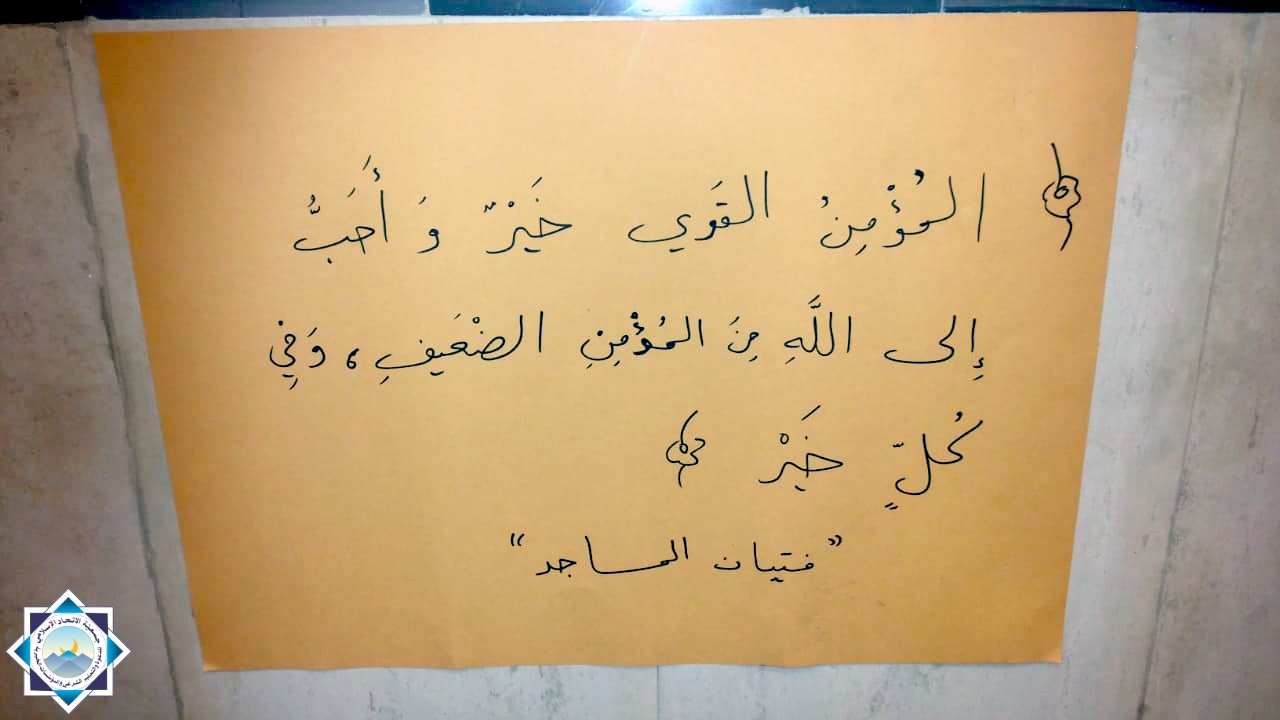 ﴿ المُؤْمِنُ القَوَي خَيْرٌ وَ أَحَبُّ
إِلى اللَّهِ مِنَ المُؤْمِنِ الضْعَيفِ، وَفِي
كُلٍّ خَيْر ﴾
"فتيان المساجد"
جمعية الاتحاد الإسلامي